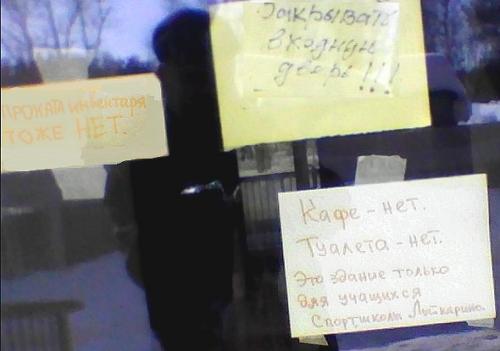 Закрывать
входную
дверь!!!
ПРОКАТА инвентаря
ТОЖЕ НЕТ.
Кафе - нет.
Туалета - нет.
Это здание только
для учащихся
Спортшколы Лыткарино.